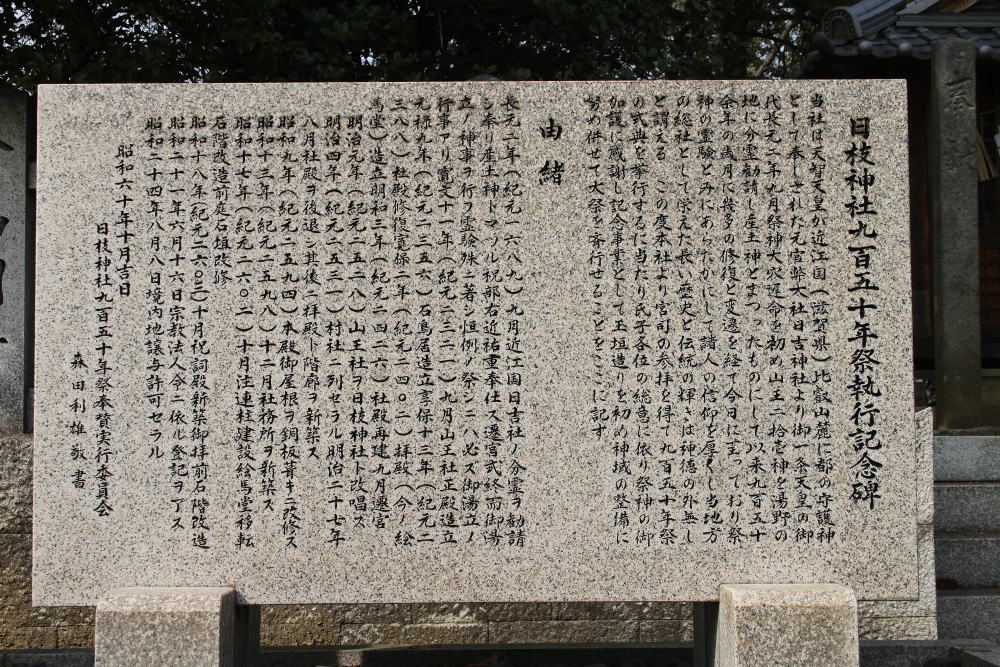 日枝神社九百五十年祭執行記念碑
当社は天智天皇が近江国(滋賀県)比叡山麓に都の守護神
として奉しされた元官幣大社日吉神社より御一条天皇の御
代長元二年九月祭神大穴遅命を初め山王二拾壱神を湯野の
地に分霊勧請し産土神とまつったものにして以来九百五十
余年の歳月に幾多の修復と変遷を経て今日に至っており祭
神の霊験とみにあらたかにして諸人の信仰を厚くし当地方
の総社として栄えた長い歴史と伝統の輝きは神徳の外無し
と謂える この度本社より宮司の参拝を得て九百五十年祭
の式典を挙行するに当たり氏子各位の総意に依り祭神の御
加護に感謝し記念事業として玉垣造りを初め神域の整備に
努め併せて大祭を斎行せることをここに記す
由緒
長元二年(紀元一六八九)九月近江国日吉社ノ分霊ヲ勧請
シ奉り産土神トマツル祝部右近祐重奉仕ス遷宮式終而御湯
立ノ神事ヲ行フ霊験殊ニ著シ恒例ノ祭シニハ必ズ御湯立ノ
行事アリ寛文十一年(紀元二三二一)九月山王社正殿造立
元禄九年(紀元二三五六)石鳥居造立享保十三年(紀元二
三八八)社殿修復寛保二年(紀元二四〇二)拝殿(今ノ絵
馬堂)造立明和三年(紀元二四二六)社殿再建九月遷宮
明治元年(紀元二五二八)山王社ヲ日枝神社ト改唱ス
明治四年(紀元二五三一)村社ニ列セラル明治二十七年
八月社殿ヲ後退シ其後ニ拝殿ト階廊ヲ新築ス
昭和九年(紀元二五九四)本殿御屋根ヲ銅板葺キニ改修ス
昭和十三年(紀元二五九八)十二月社務所ヲ新築ス
昭和十七年(紀元二六〇二)十月注連柱建設絵馬堂移転
石階改造前庭石垣改修
昭和十八年(紀元二六〇三)十月祝詞殿新築御拝前石階改造
昭和二十一年六月十六日宗教法人令ニ依ル登記ヲ了ス
昭和二十四年八月八日境内地譲与許可セラル
昭和六十年十月吉日
日枝神社九百五十年祭奉賛実行委員会
森田利雄敬書
奉